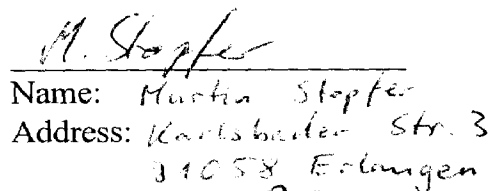 M. Stopfer
Name: Martin Stopfer
Address: Karlsbader Str. 3
91058 Erlangen